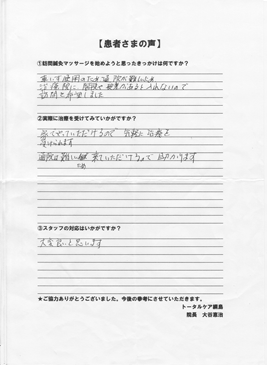 【患者さまの声】
①訪問鍼灸マッサージを始めようと思ったきっかけは何ですか？
車いす使用のため通院が難しく
治療院に階段や段差があると入れないので
訪問を希望しました
②実際に治療を受けてみていかがですか？
来ていただけるので 気軽に治療を
受けられます
通院は難しい為 来ていただけるので 助かります
③スタッフの対応はいかがですか？
大変良いと思います
★ご協力ありがとうございました。今後の参考にさせていただきます。
トータルケア鍋島
院長 大谷憲治